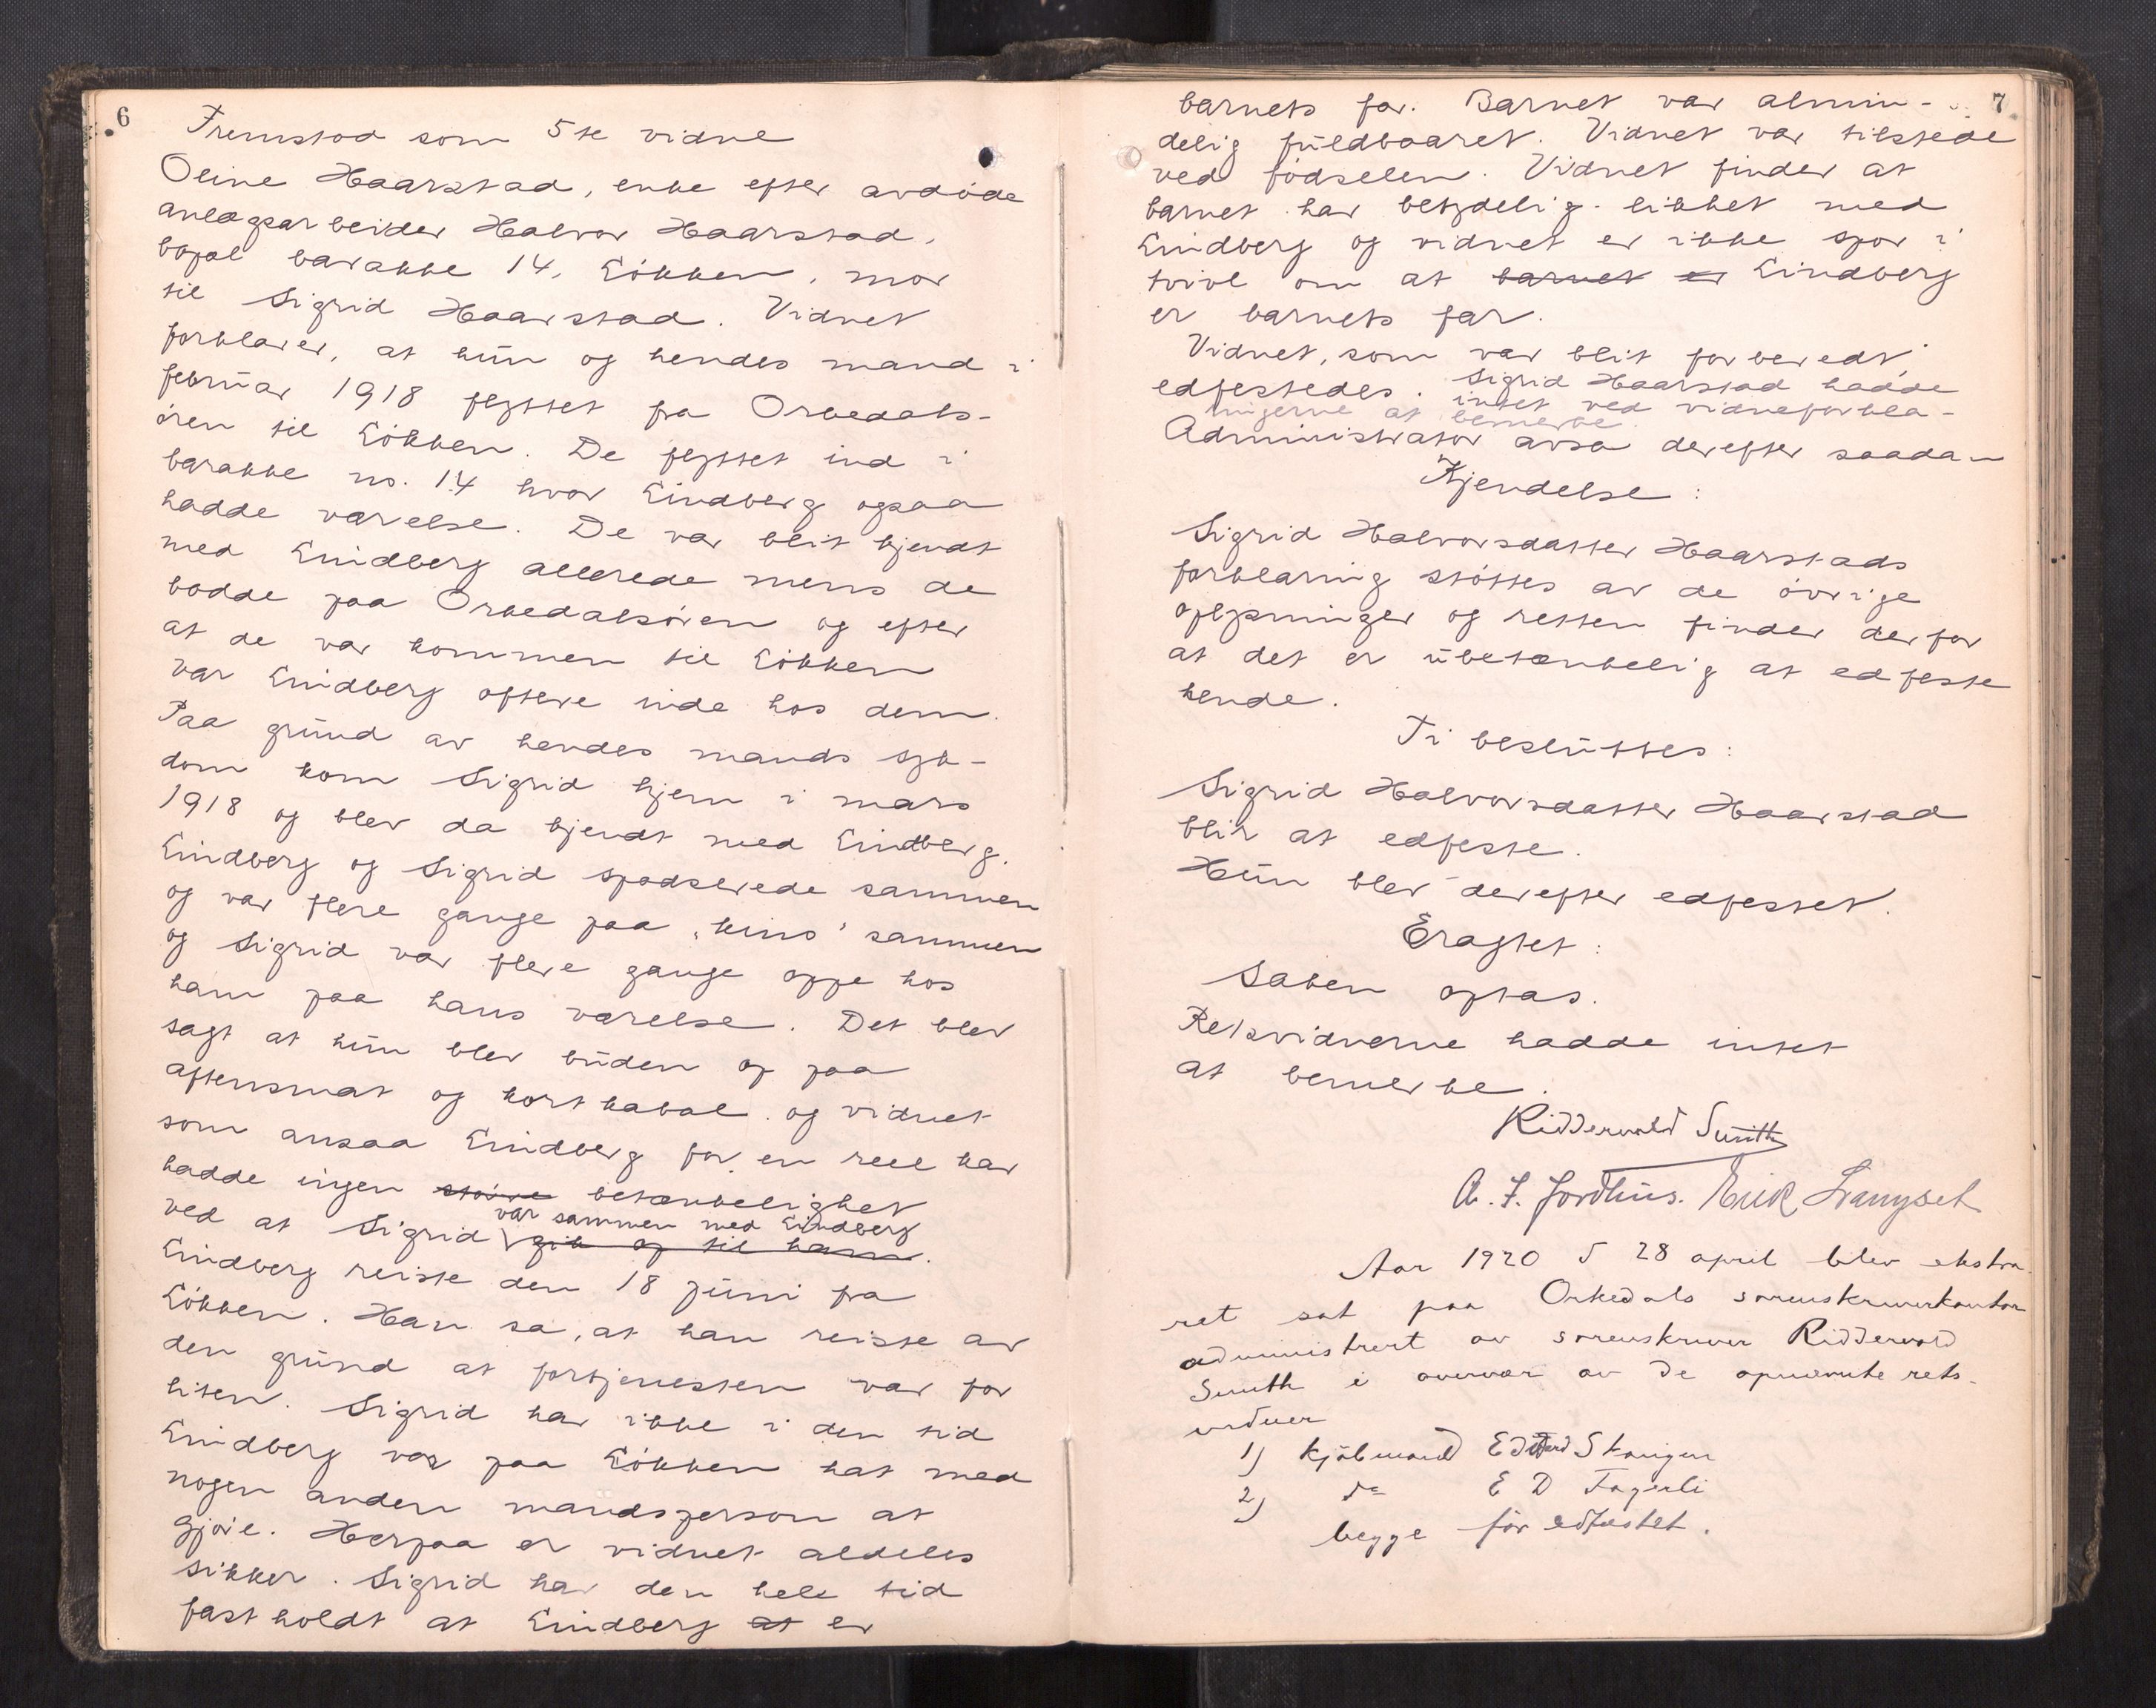 6
Fremstod som 5te vidne
Oline Haarstad, enke efter avdøde
anlægsarbeider Halvor Haarstad,
bopæl barakke 14, Løkken, mor
til Sigrid Haarstad. Vidnet
forklarer, at hun og hendes mand i
februar 1918 flyttet fra Orkedals-
øren til Løkken. De flyttet ind i
barakke no. 14 hvor Lindberg ogsaa
hadde værelse. De var blit kjendt
med Lindberg allerede mens de
bodde paa Orkedalsøren og efter
at de var kommen til Løkken
var Lindberg oftere inde hos dem.
Paa grund av hendes mands syk-
dom kom Sigrid hjem i mars
1918 og blev da kjendt med Lindberg.
Lindberg og Sigrid spadserede sammen
og var flere gange paa "kino" sammen
og Sigrid var flere gange oppe hos
ham paa hans værelse. Det blev
sagt at hun blev buden op paa
aftensmat og kortkabal og vidnet
som ansaa Lindberg for en reel kar
hadde ingen større betænkelighet
var sammen med Lindberg
ved at Sigrid gik op til ham.
Lindberg reiste den 18 juni fra
Løkken. Han sa, at han reiste av
den grund at fortjenesten var for
liten. Sigrid har ikke i den tid
Lindberg var paa Løkken hat med
nogen anden mandsperson at
gjøre. Herpaa er vidnet aldeles
sikker. Sigrid har den hele tid
fastholdt at Lindberg at er
7
barnets far. Barnet var almin-
delig fuldbaaret. Vidnet var tilstede
ved fødselen. Vidnet finder at
barnet har betydelig likhet med
Lindberg og vidnet er ikke spor i
tvivl om at barnet er Lindberg
er barnets far.
Vidnet, som var blit forberedt,
edfestedes. Sigrid Haarstad hadde
intet ved vidneforkla-
ringerne at bemerke.
Administrator avsa derefter saadan
Kjendelse:
Sigrid Halvorsdatter Haarstads
forklaring støttes av de øvrige
oplysninger og retten finder derfor
at det er ubetænkelig at edfeste
hende.
Ti besluttes:
Sigrid Halvorsdatter Haarstad
blir at edfeste.
Hun blev derefter edfestet.
Eragtet:
Saken optas.
Retsvidnerne hadde intet
at bemerke.
Ridderwold Smith
A. F. Jordhus. Erik Langseth
Aar 1920 d 28 april blev ekstra-
ret sat paa Orkedals sorenskriverkontor
administrert av sorenskriver Ridderwold
Smith i overvær av de opnævnte rets-
vidner
1) kjøbmand Edvard Skaugen
2) do E D Fagerli
begge før edfæstet.